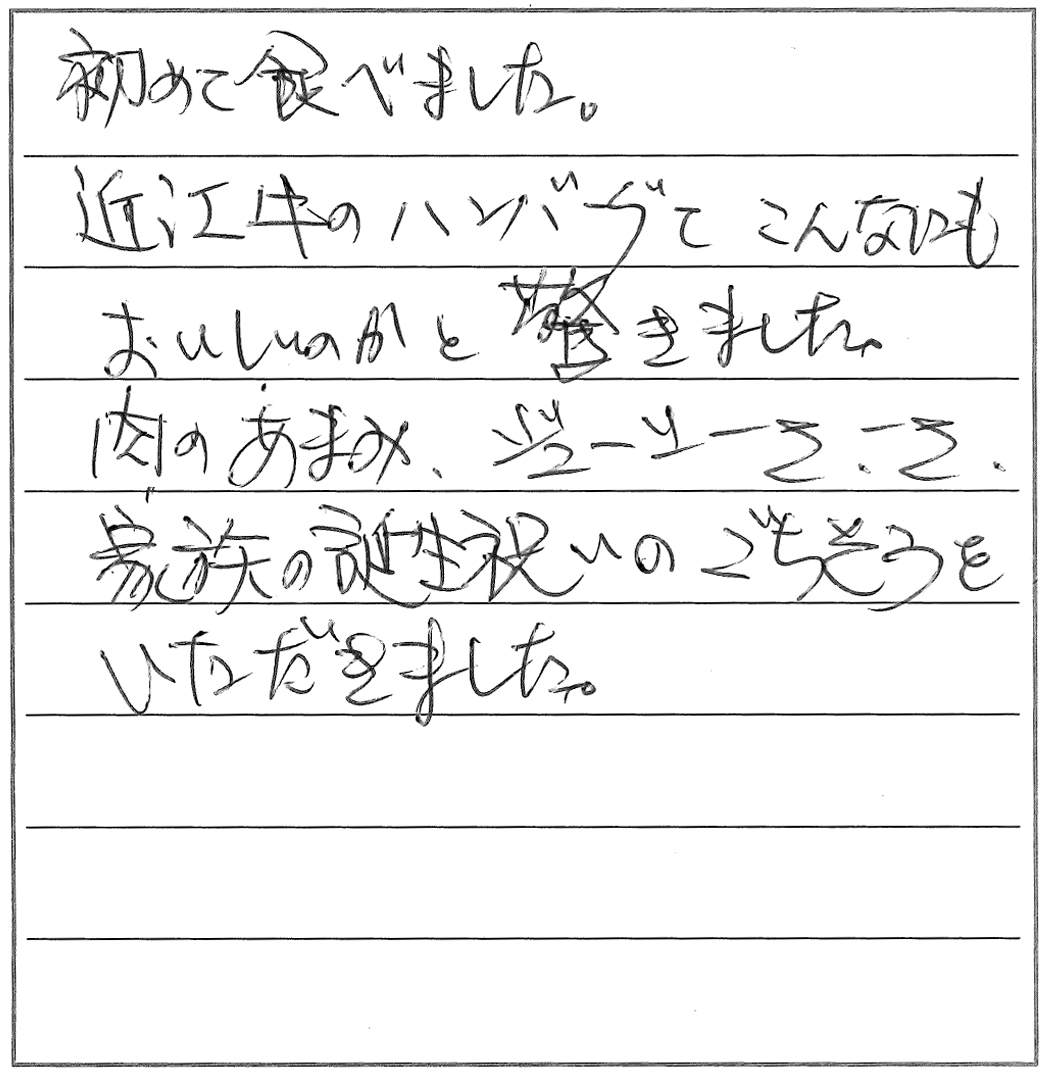 初めて食べました。
近江牛のハンバーグて こんなにも
おいしいのかと驚きました。
肉のあまみ、ジューシーさ、
家族の誕生祝いのごちそうを
いただきました。